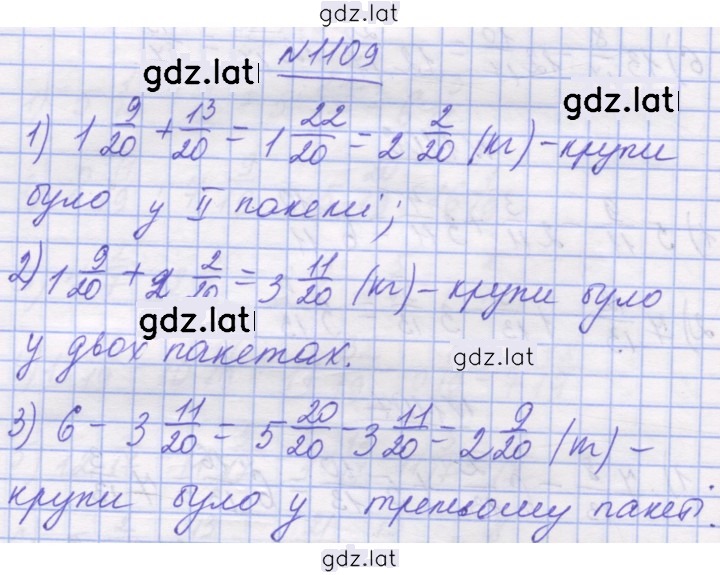 gdz.lat
№1109
gdz.lat
gdz.lat
1) 1 9/20 + 13/20 = 1 22/20 = 2 2/20 (кг) – крупи
було у II пакеті;
2) 1 9/20 + 2 2/20 = 3 11/20 (кг) – крупи було
gdz.lat
у двох пакетах.
gdz.lat
3) 6 - 3 11/20 = 5 20/20 - 3 11/20 = 2 9/20 (т) –
крупи було у третьому пакеті.
gdz.lat